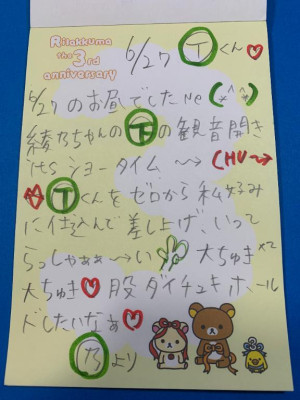 Rilakkuma
the 3rd
anniversary
6/27 Ⓣくん♥
6/27のお昼でしたNe(*^^*)
綾乃ちゃんの下の観音開き
itsショータイム〜→CHU〜→
Ⓣくんをゼロから私好み
に仕込んで差し上げ、いって
らっしゃぁぁ〜→い✌大ちゅき×2
大ちゅき♥股ダイチュキホール
ドしたいなぁ♥
より